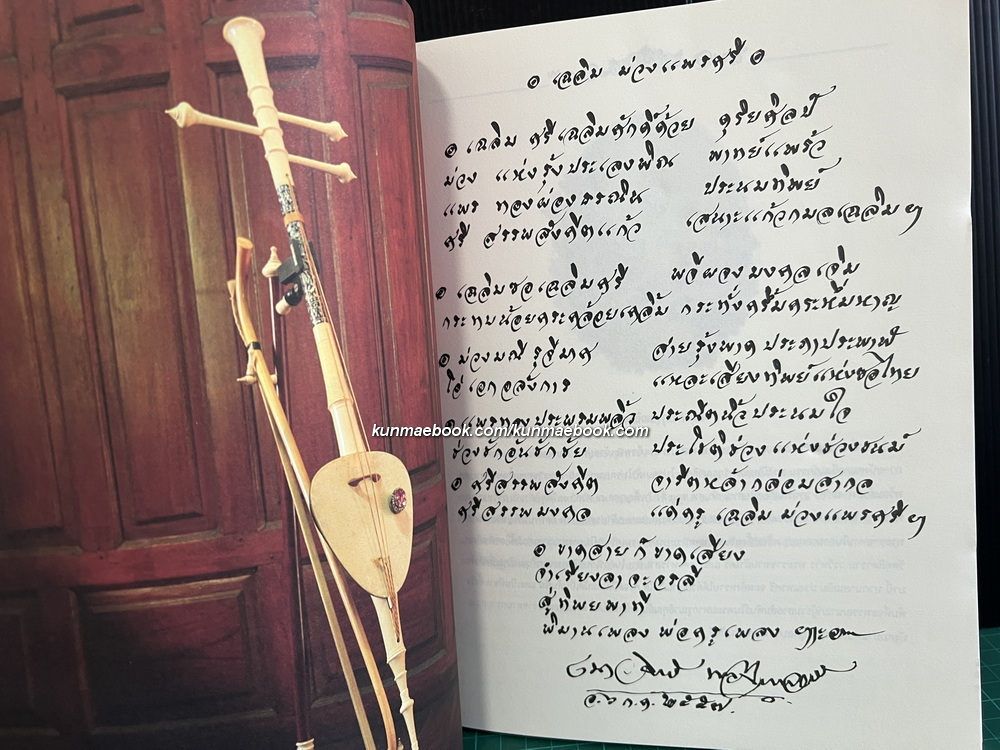 ๏ เฉลิม ม่วงแพรศรี ๏
๏ เฉลิม ศรีเฉลิมศักดิ์ด้วย ดุริยศิลป์
ม่วง แห่งรุ้งประเลงพิณ พาทย์แพร้ว
แพร ทองผ่องธรณิน ประนมทิพย์
ศรี สรรพสังคีตแก้ว เสนาะแก้วกมลเฉลิม ฯ
๏ เฉลิมซอเฉลิมศรี พลีผองมงคลเจิม
กระทบน้อยกระคล้อยเคลิ้ม กระทั่งครึ้มกระหึ่มหาญ
๏ ม่วงมณี รุจีมาศ สายรุ้งพาดประภาประพาฬ
โอ่เอกอลังการ แหละเสียงทิพย์แห่งซอไทย
๏ แพรทองประพรมพลิ้ว ประณีตนิ้วประนมใจ
ช่วงชักอันชักชัย ประโชติช่วงแห่งช่วงชนม์
๏ ศรีสรรพสังคีต จารีตหล้ากล่อมสากล
ศรีสรรพมงคล แด่ครู เฉลิม ม่วงแพรศรี ฯ
๏ ขาดสาย ก็ขาดเสียง
จำเรียงลา จะจรลี
สู่ทิพยพาที
พิมานเพลง พ่อครูเพลง
๒๕๕๗.
kunmaebook.com/kunmaebook.com